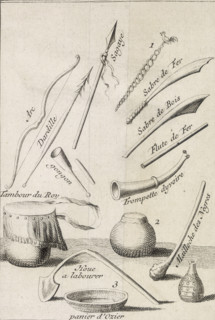 Arc
Dardille
Sagaye
1
Sabre de Fer
Sabre de Bois
Flute de Fer
Trompette d'yvoire
Tambour du Roy
2
Malloche des Negres
Hoüe
a labourer
3
panier d'Ozier